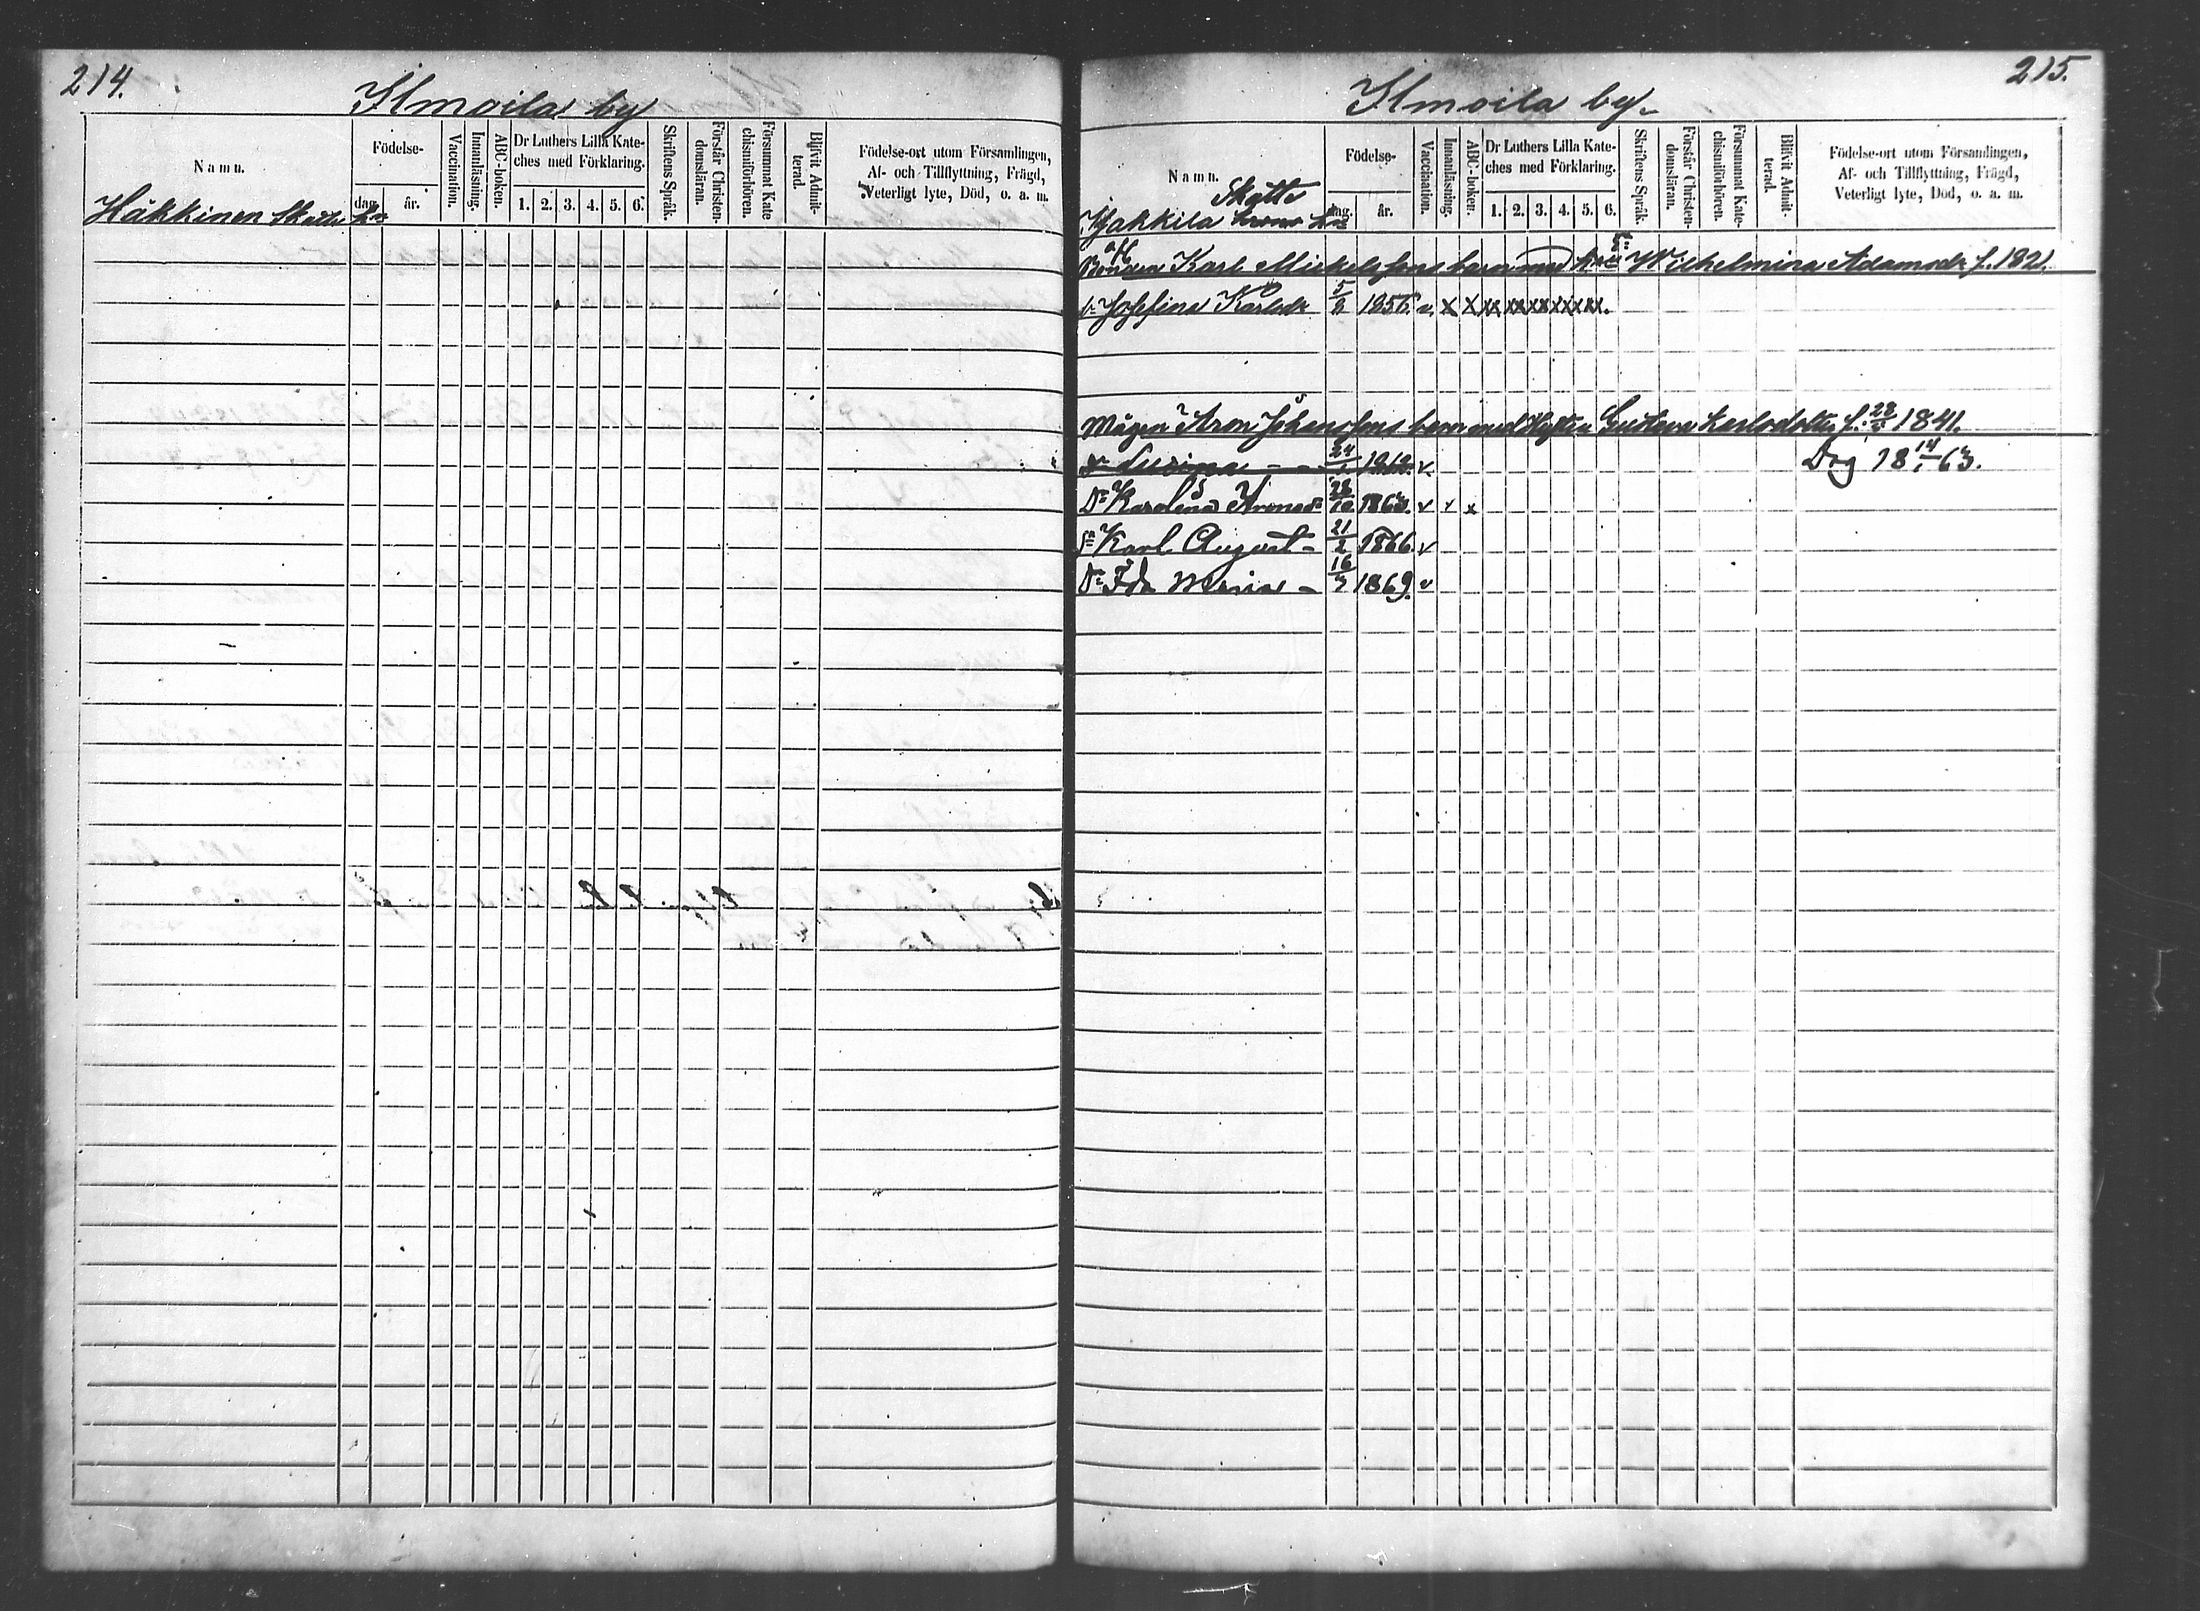 214.
Ilmoila by
Namn.
Födelse-
dag.
år.
Vaccination.
Innanläsning.
ABC-boken.
Dr Luthers Lilla Kate-
ches med Förklaring.
1. 2. 3. 4. 5. 6.
Skriftens Språk.
Förstår Christen-
domsläran.
Försummat Kate
chismiförhören.
Blifvit Admit-
terad.
Födelse-ort utom Församlingen,
Af- och Tillflyttning, Frägd,
Veterligt lyte, Död, o. a. m.
Häkkinen Skatte hn
215.
Ilmoila by.
Namn.
Födelse-
dag.
år.
Vaccination.
Innanläsning.
ABC-boken.
Dr Luthers Lilla Kate-
ches med Förklaring.
1. 2. 3. 4. 5. 6.
Skriftens Språk.
Förstår Christen-
domsläran.
Försummat Kate-
chismiförhören.
Blifvit Admit-
terad.
Födelse-ort utom Församlingen,
Af- och Tillflyttning, Frägd,
Veterligt lyte, Död, o. a. m.
Skatte
Jakkila
Bonden Karl Mickelssons barn med hru Wilhelmina Adamsdr f. 1821.
Josefina Karlsdr 5/8 1856. v. x x xx xx xx xx xx xx.
Mågen Aron Johanssons barn med Hustru Gustava Karlsdotter f. 1841.
Dr Lusina - - 24/1 1862. v. Dög 18 14/1 63.
Dr Karolina Aronsdr 28/10 1863. v v x
Sn Karl August - 21/2 1866. v
Dr Ida Maria - 16/7 1869. v